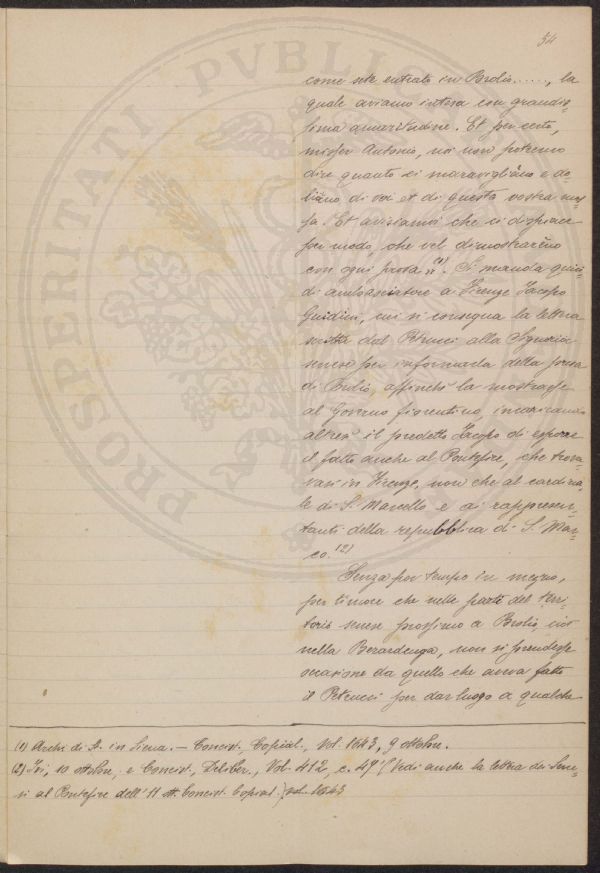 54
come sete entrato in Brolio......, la
quale aviamo intesa con grandis-
sima amaritudine. Et per certo,
misser Antonio, noi non potremo
dire quanto ci maravigliamo e do-
liamo di voi et di questa vostra mos-
sa. Et avisianvi che ci dispiace
per modo, che vel dimostraremo
con ogni prova" (1). Si manda quin-
di ambasciatore a Firenze Jacopo
Guidini, cui si consegna la lettera
scritta dal Petrucci alla Signoria
senese per informarla della presa
di Brolio, affinchè la mostrasse
al Governo fiorentino, incaricando
altresì il predetto Jacopo di esporre
il fatto anche al Pontefice, che trova-
vasi in Firenze, non che al cardina-
le di S. Marcello e ai rappresen-
tanti della repubblica di S. Mar-
co. (2)
Senza por tempo in mezzo,
per timore che nelle parti del terri-
torio senese prossimo a Brolio, cioè
nella Berardenga, non si prendesse
occasione da quello che aveva fatto
il Petrucci per dar luogo a qualche
(1) Archi. di St. in Siena. — Concist., Copial., Vol. 1643, 9 ottobre.
(2) Ivi, 10 ottobre, e Concist., Deliber., Vol. 412, c. 47 (Vedi anche la lettera dei Sene-
si al Pontefice dell'11 ott. Concist. Copial.) vol. 1643
PROSPERITATI PVBLICAE